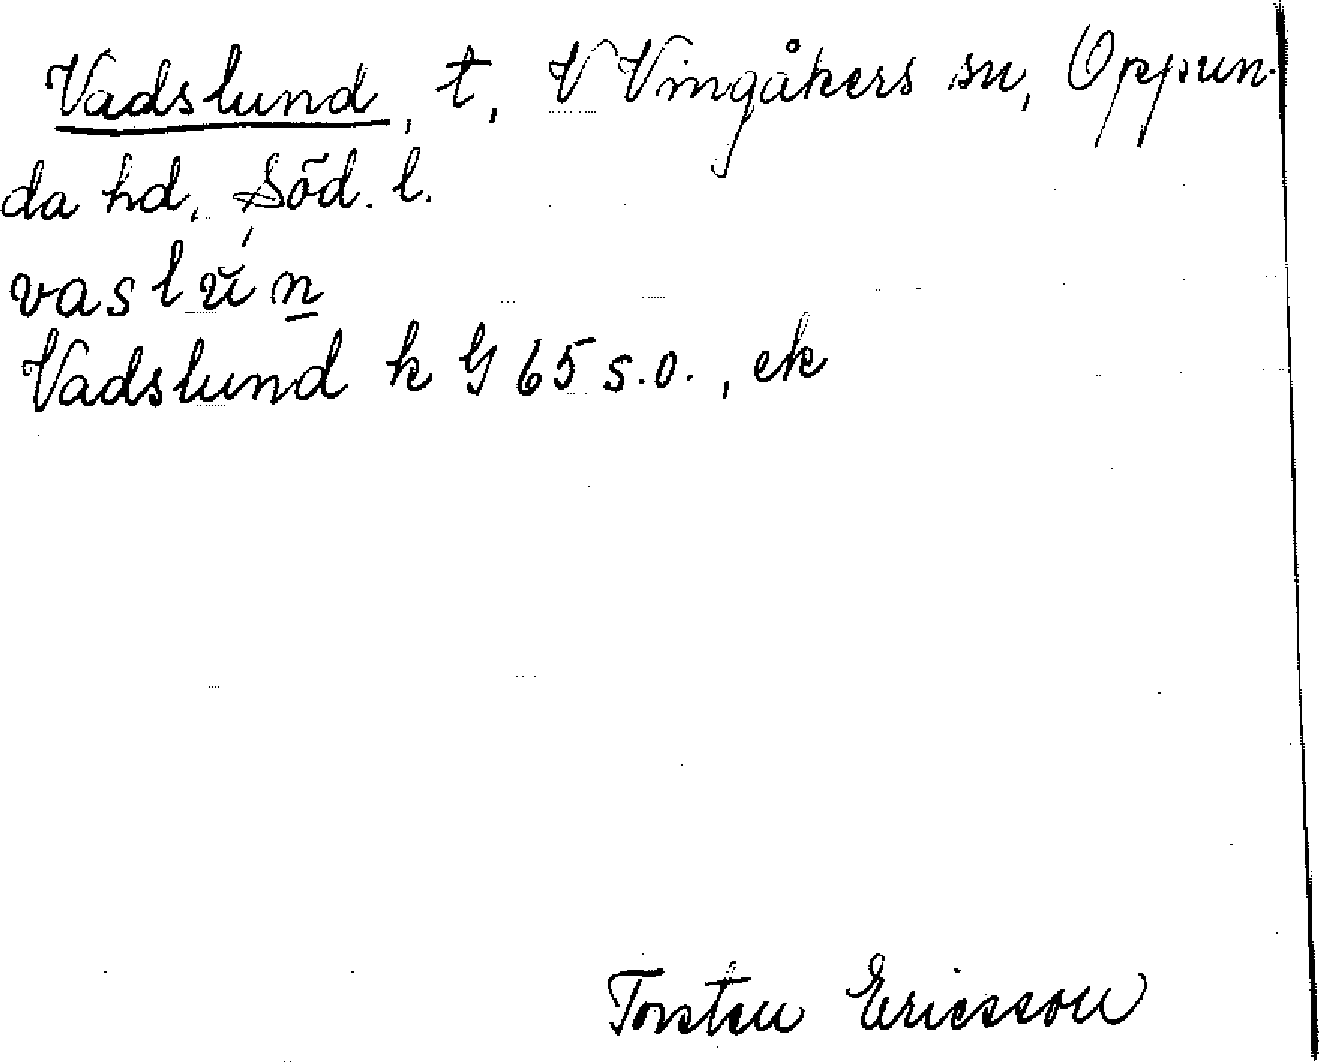 Vadslund, t, V Vingåkers sn, Oppun-
da hd, Söd. l.
vaslŭ́n̲
Vadslund k G 65 s.o., ek
Torsten Ericsson